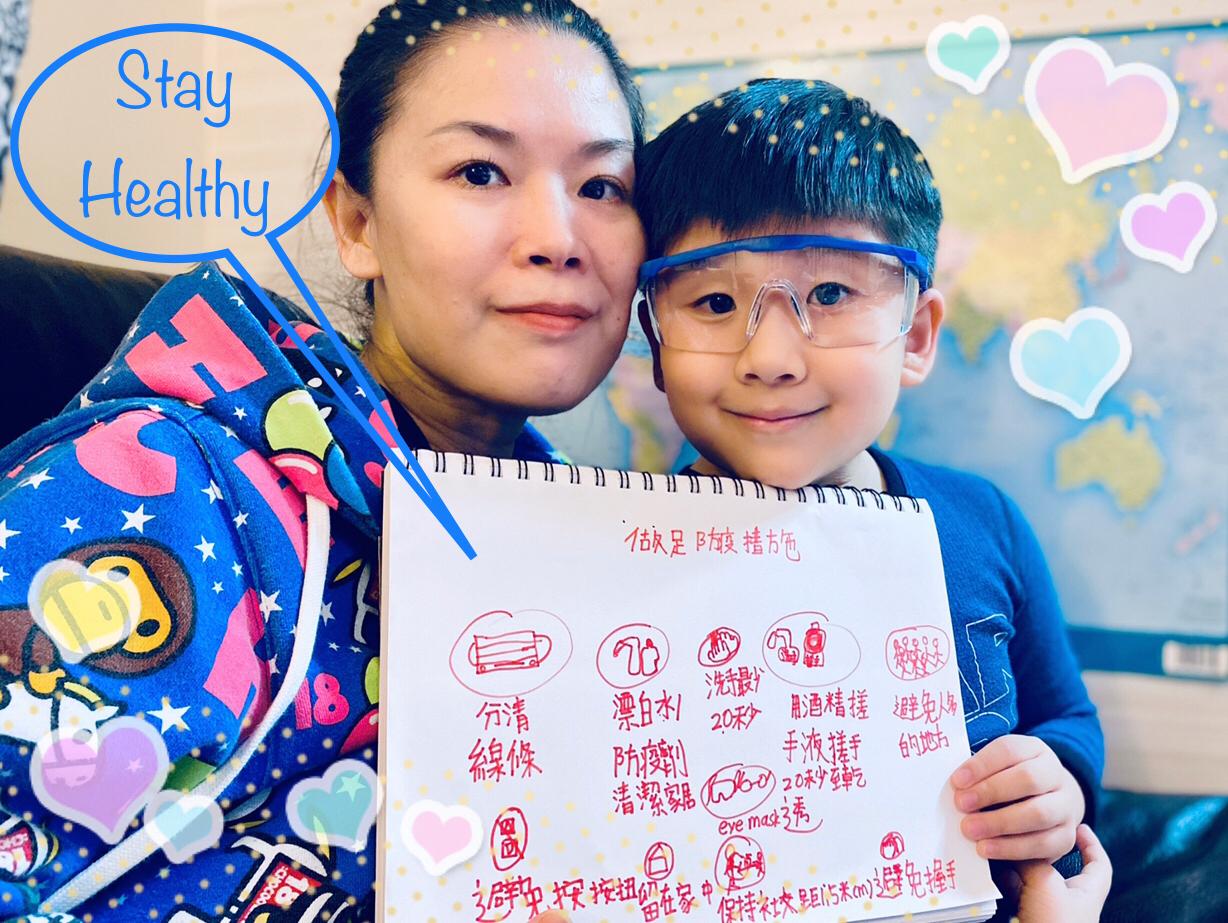 Stay
Healthy
做足防疫措施
分清
線條
漂白水
防疫劑
清潔家居
洗手最少
20秒
用酒精搓
手液搓手
20秒至乾
透
避免人多
的地方
eye mask
避免按按扭
留在家中
保持社交距(1.5米cm)
避免握手
18